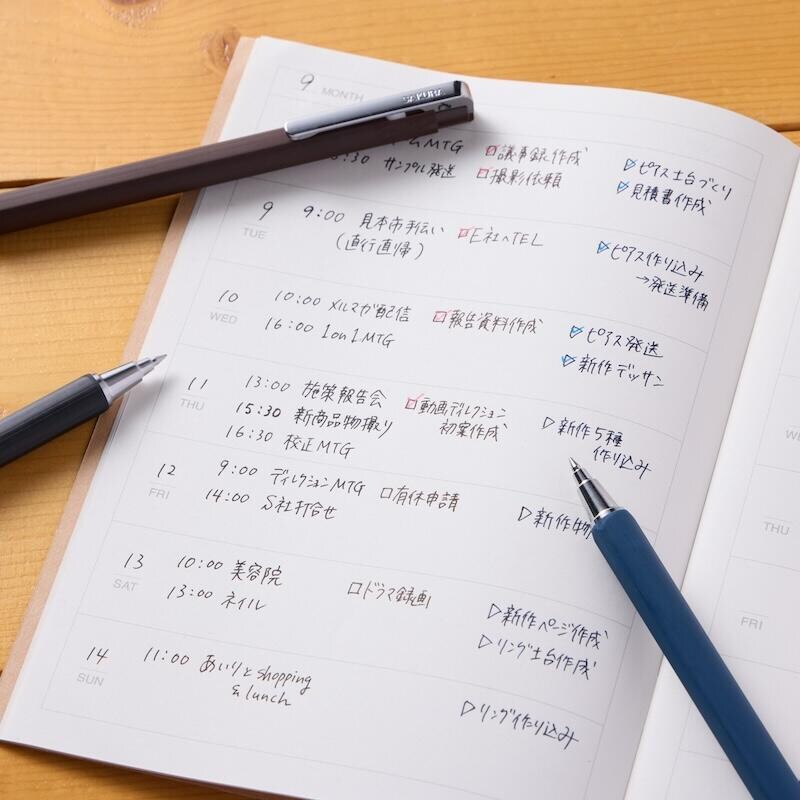 9 MONTH
SAKURA
MTG □議事録作成 ▷ピアス土台づくり
:30 サンプル発送 □撮影依頼 ▷見積書作成
9 9:00 見本市手伝い □E社へTEL ▷ピアス作り込み
TUE (直行直帰) →発送準備
10 10:00 メルマガ配信 □報告資料作成 ▷ピアス発送
WED 16:00 1on1MTG ▷新作デッサン
11 13:00 施策報告会 □動画ディレクション ▷新作5種
THU 15:30 新商品物撮り 初案作成 作り込み
16:30 校正MTG
12 9:00 ディレクションMTG □有休申請 ▷新作物
FRI 14:00 S社打合せ
13 10:00 美容院 □ドラマ録画 ▷新作ページ作成
SAT 13:00 ネイル ▷リング土台作成
14 11:00 あいりとshopping ▷リング作り込み
SUN & lunch
THU
FRI